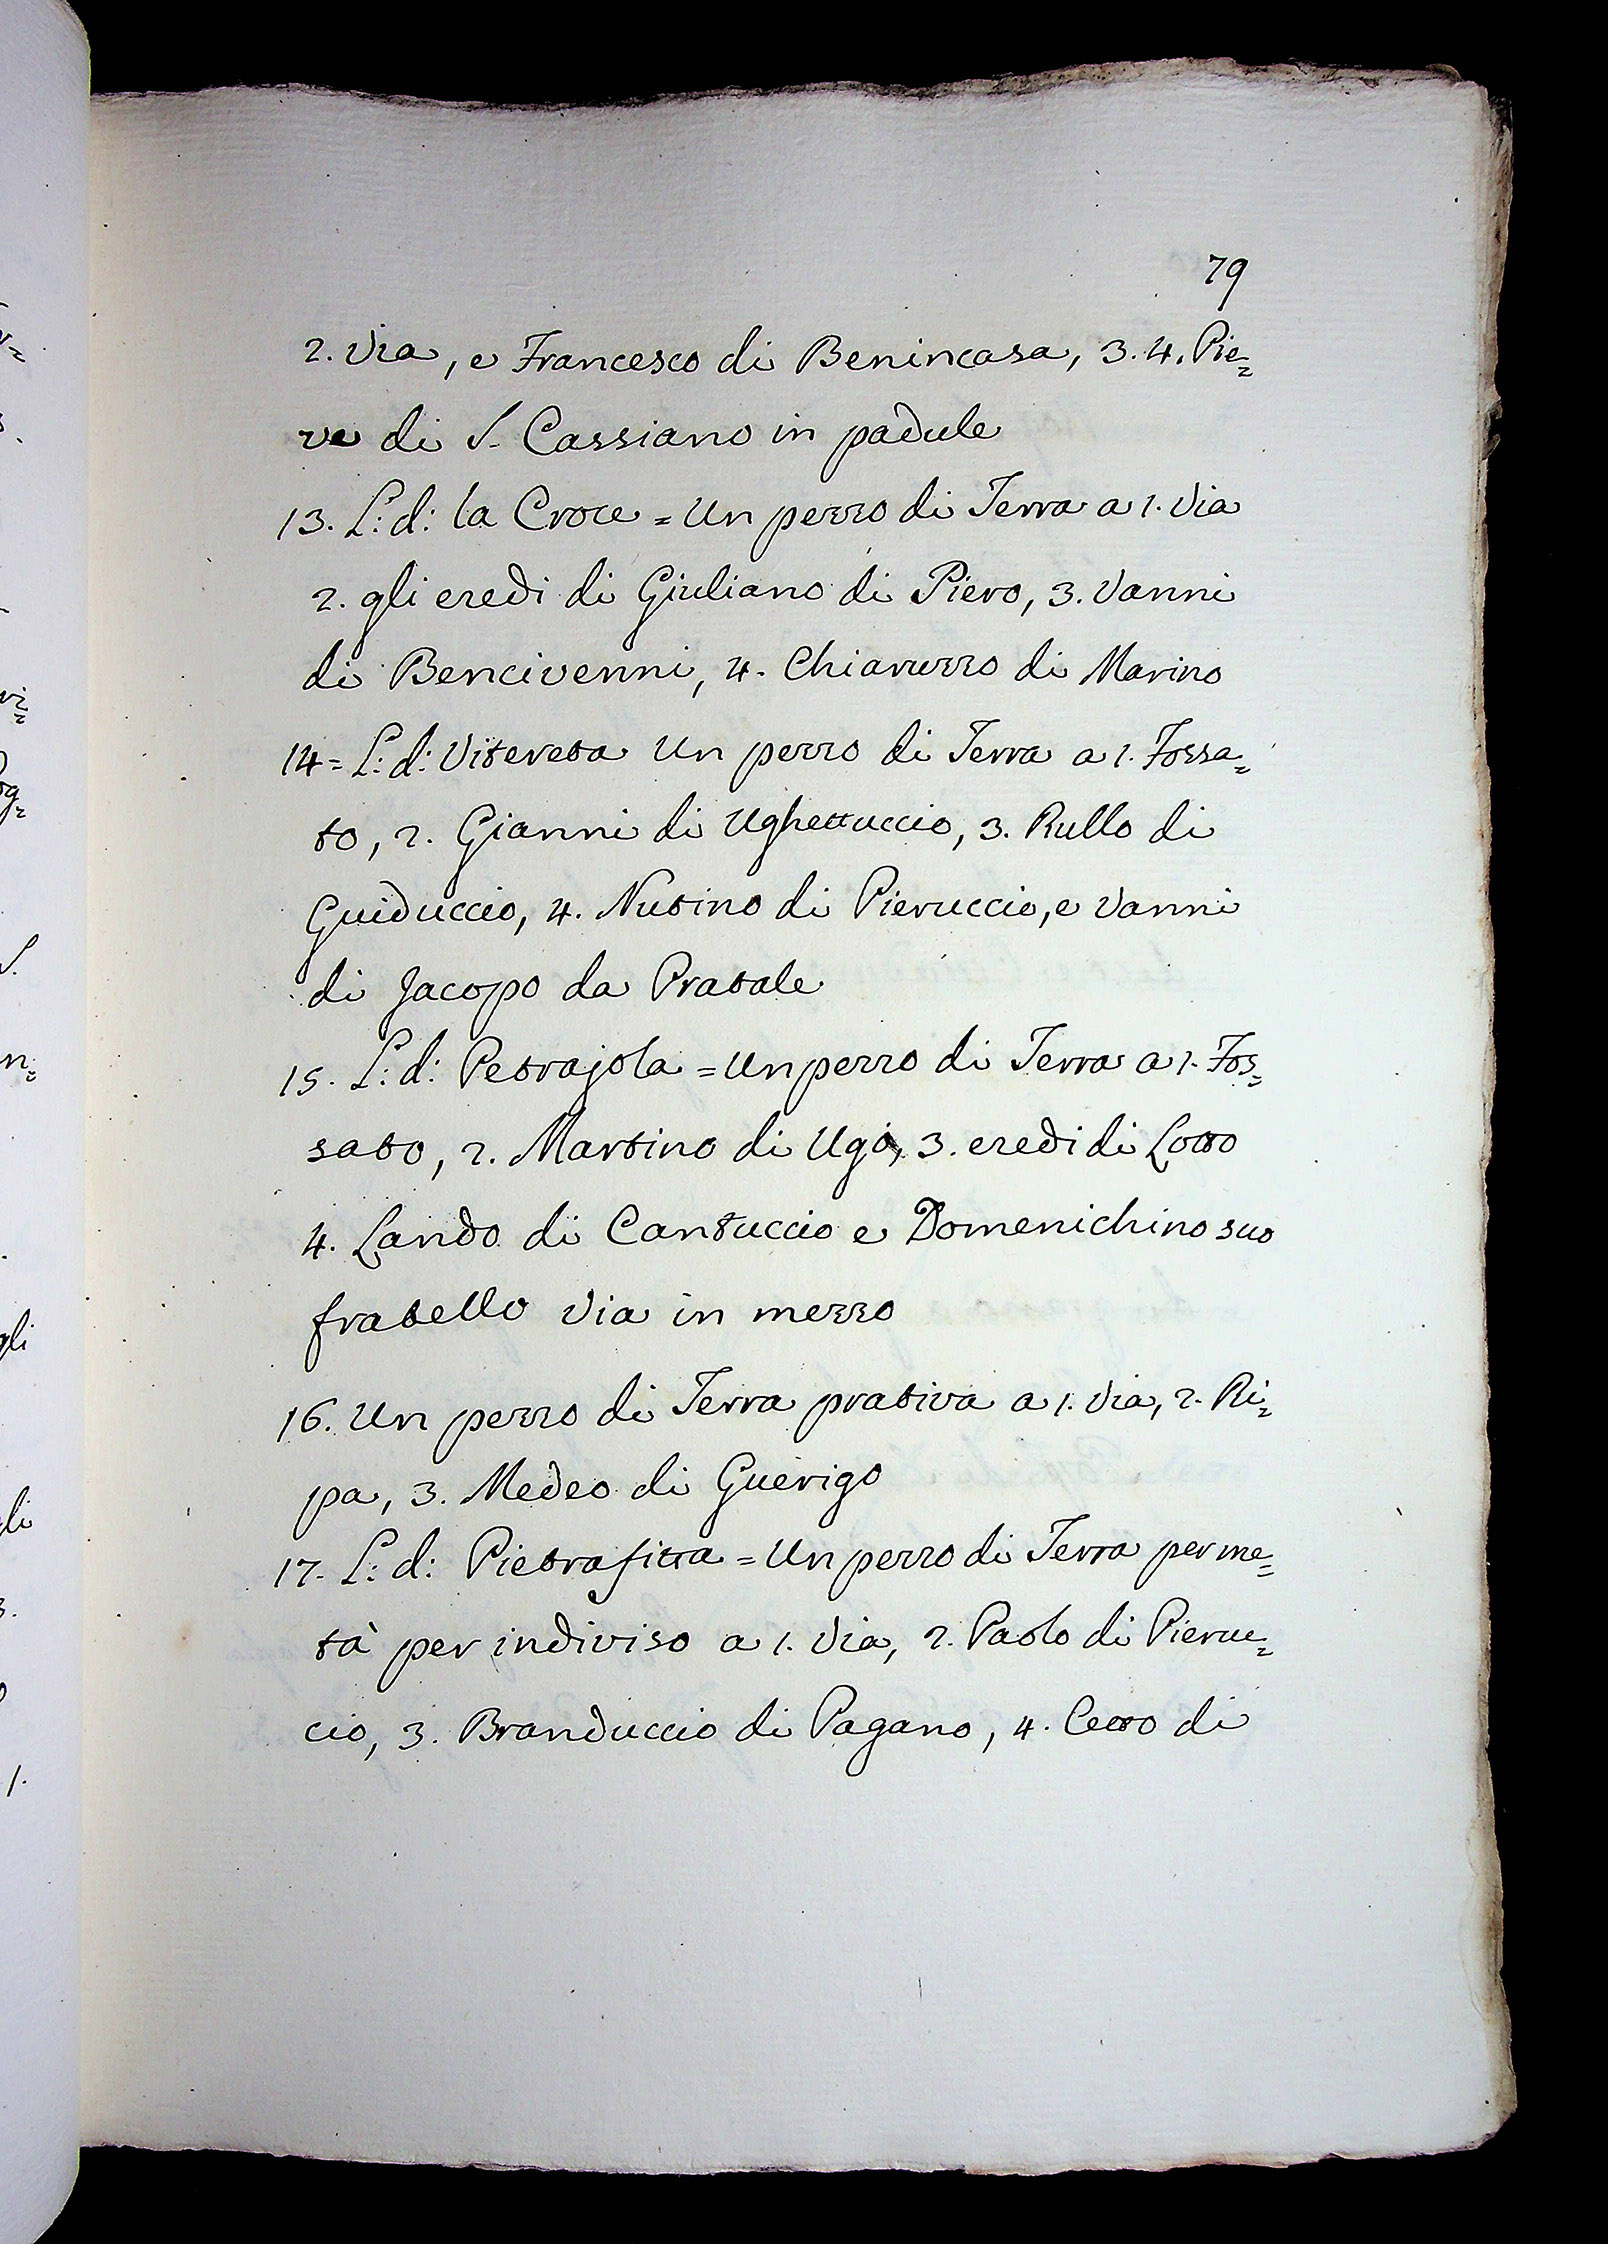 79
2. Via, e Francesco di Benincasa, 3. 4. Pie=
ve di S. Cassiano in padule
13. L: d: la Croce = Un pezzo di Terra a 1. Via
2. gli eredi di Giuliano di Piero, 3. Vanni
di Bencivenni, 4. Chiaruzzo di Marino
14 = L: d: Vitereta Un pezzo di Terra a 1. Fossa=
to, 2. Gianni di Ughettuccio, 3. Rullo di
Guiduccio, 4. Nutino di Pieruccio, e Vanni
di Jacopo da Pratale
15. L: d: Petrajola = Un pezzo di Terra a 1. Fos=
sato, 2. Martino di Ugo, 3. eredi di Lotto
4. Lando di Cantuccio e Domenichino suo
fratello Via in mezzo
16. Un pezzo di Terra prativa a 1. Via, 2. Ri=
pa, 3. Medeo di Guerigo
17. L: d: Pietrafitta = Un pezzo di Terra per me=
tà per indiviso a 1. Via, 2. Paolo di Pieruc=
cio, 3. Branduccio di Pagano, 4. Cetto di